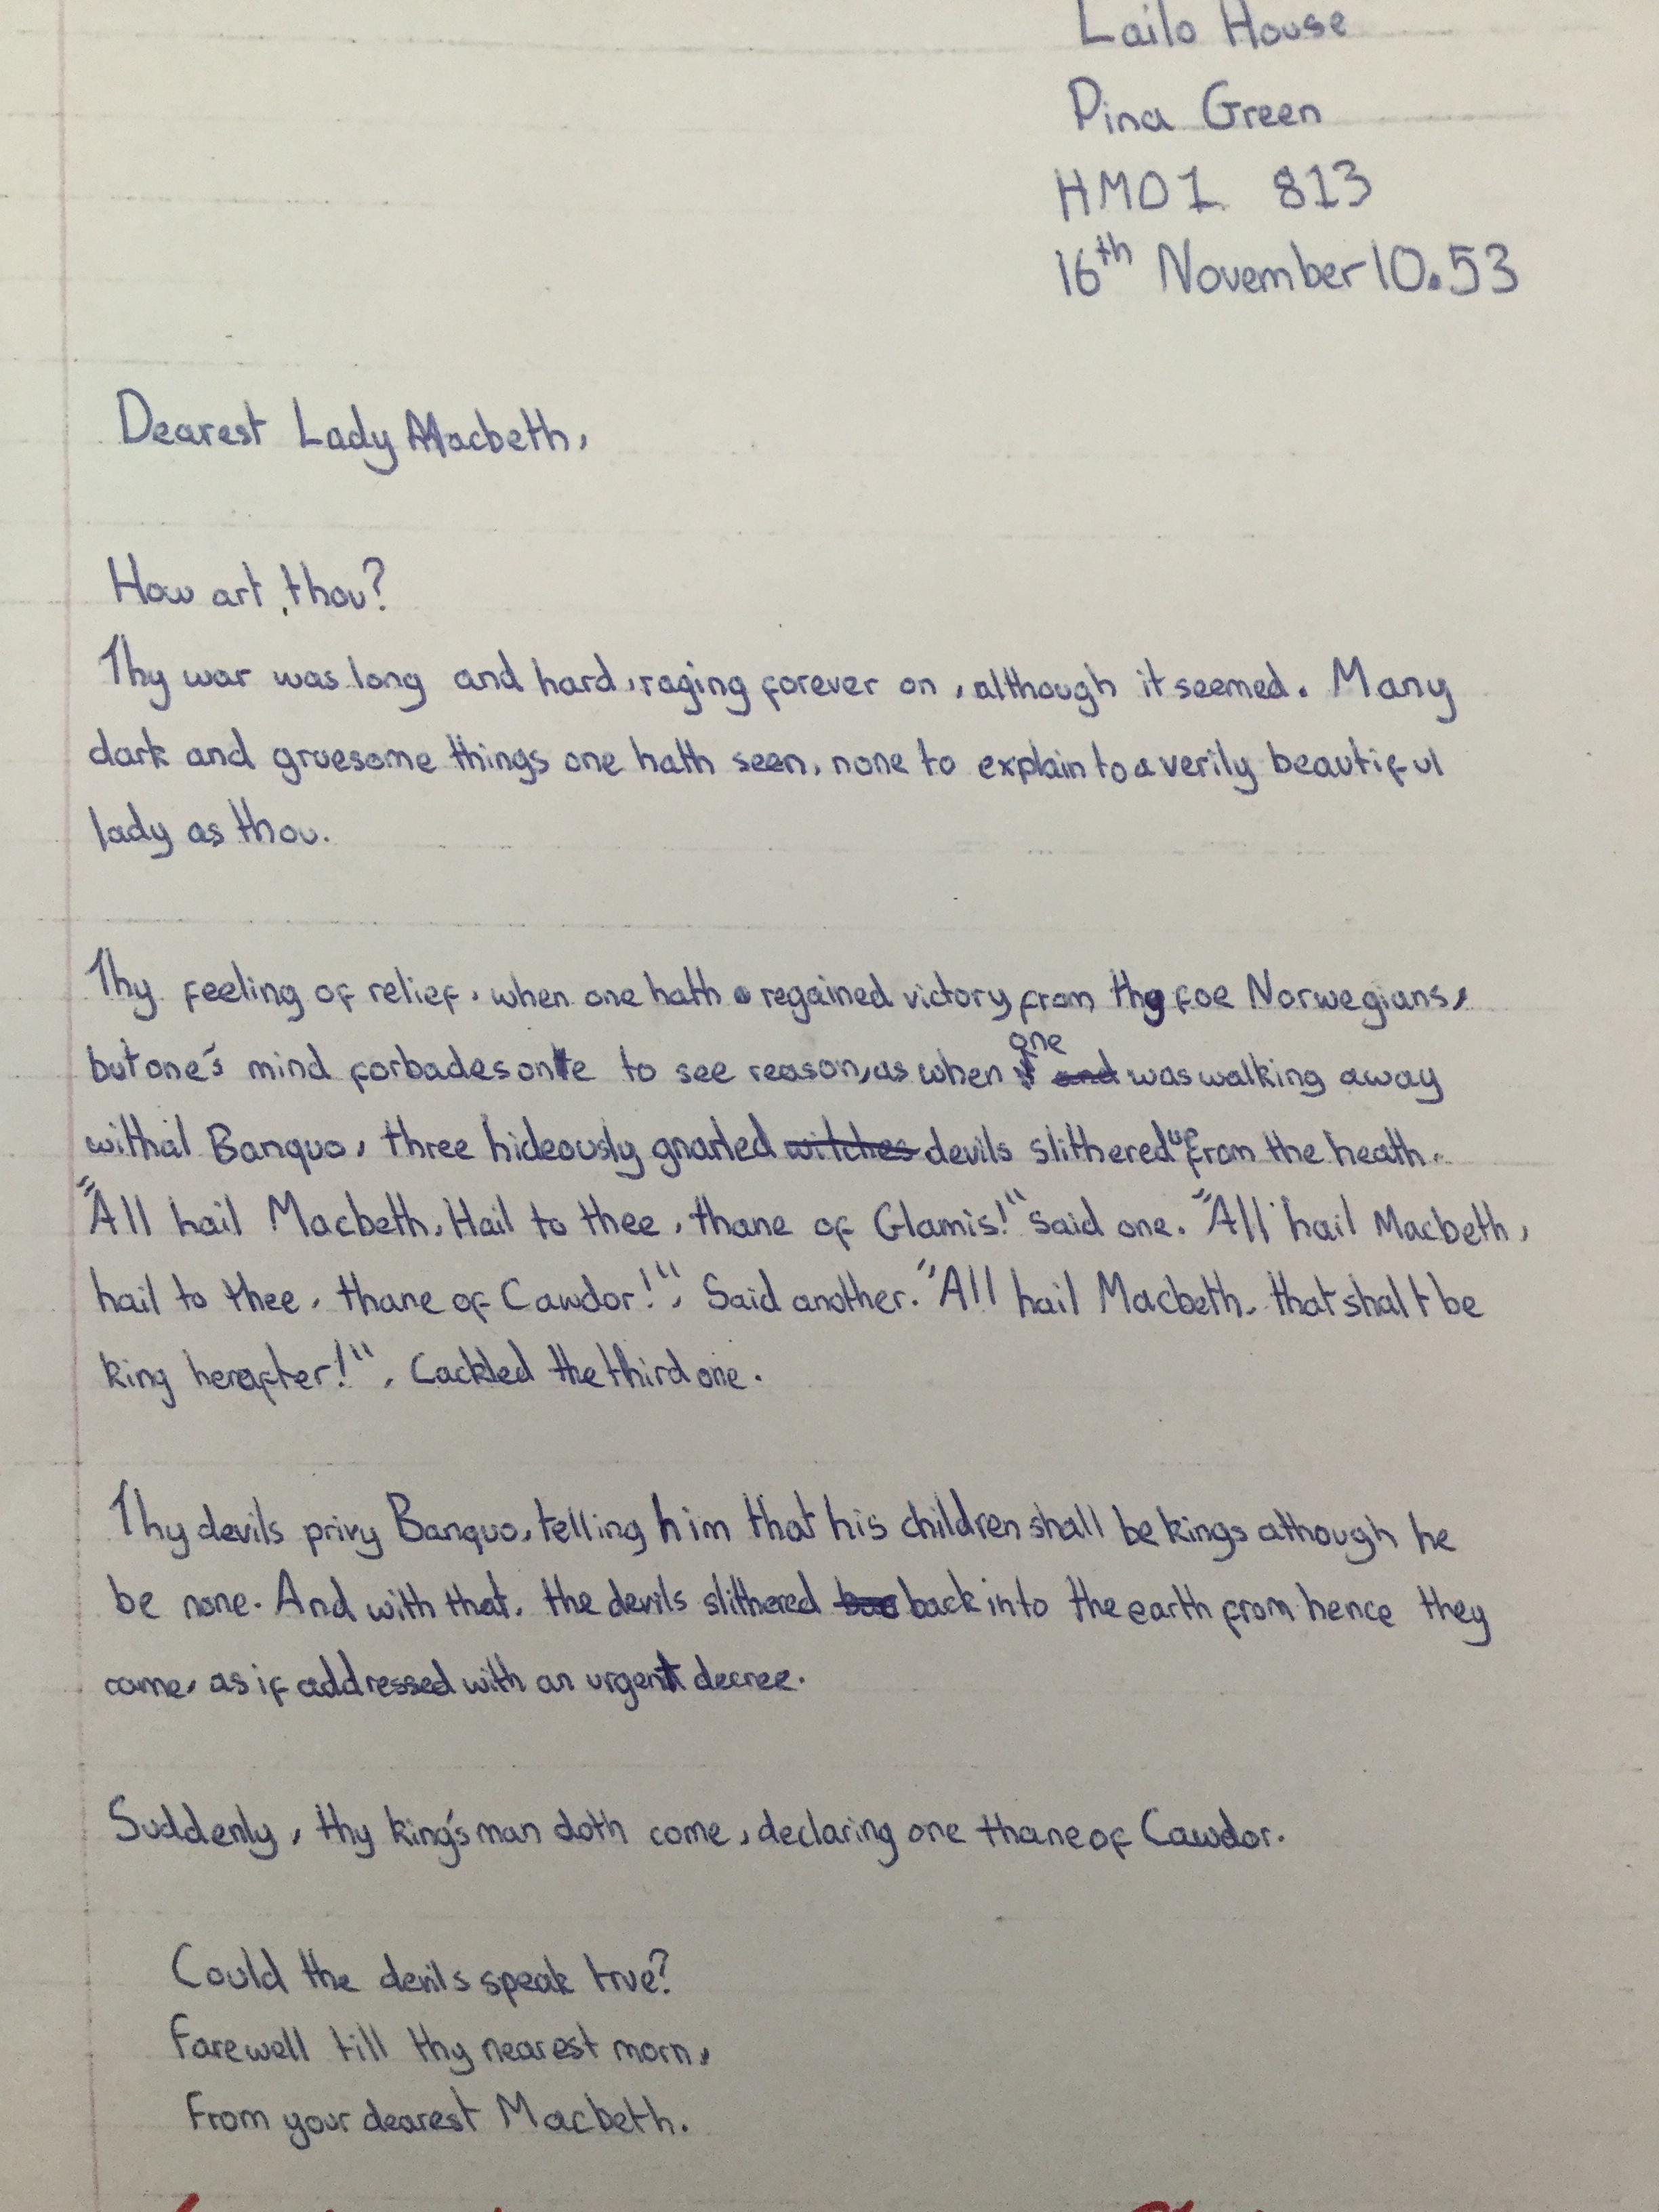 Lailo House
Pina Green
HM01 813
16th November 10.53
Dearest Lady Macbeth,
How art, thou?
Thy war was long and hard, raging forever on, although it seemed. Many
dark and gruesome things one hath seen, none to explain to a verily beautiful
lady as thou.
Thy feeling of relief, when one hath regained victory from thy foe Norwegians,
but one's mind forbades one to see reason, as when one was walking away
withal Banquo, three hideously gnarled witches devils slithered up from the heath.
"All hail Macbeth, Hail to thee, thane of Glamis!" Said one. "All hail Macbeth,
hail to thee, thane of Cawdor!", Said another. "All hail Macbeth, that shalt be
king herafter!", Cackled the third one.
Thy devils privy Banquo, telling him that his children shall be kings athough he
be none. And with that, the devils slithered back into the earth from hence they
came, as if addressed with an urgent decree.
Suddenly, thy king's man doth come, declaring one thane of Cawdor.
Could the devils speak true?
Farewell till thy nearest morn,
From your dearest Macbeth.